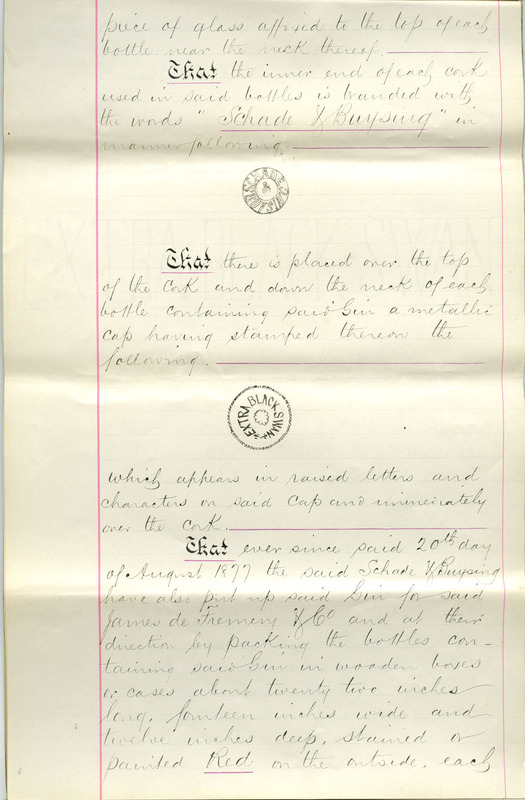 piece of glass affixed to the top of each
bottle near the neck thereof.
That the inner end of each cork
used in said bottles is branded with
the words "Schade & Buysing" in
manner following.
SCHADE & BUYSING
That there is placed over the top
of the Cork and down the neck of each
bottle containing said Gin a metallic
cap having stamped thereon the
following.
EXTRA BLACK SWAN
which appears in raised letters and
characters on said Cap and immediately
over the Cork.
That ever since said 20th day
of August 1877 the said Schade & Buysing
have also put up said Gin for said
James de Fremery & Co and at their
direction by packing the bottles con-
taining said Gin in wooden boxes
or cases about twenty two inches
long, fourteen inches wide and
twelve inches deep, stained or
painted Red on the outside, each